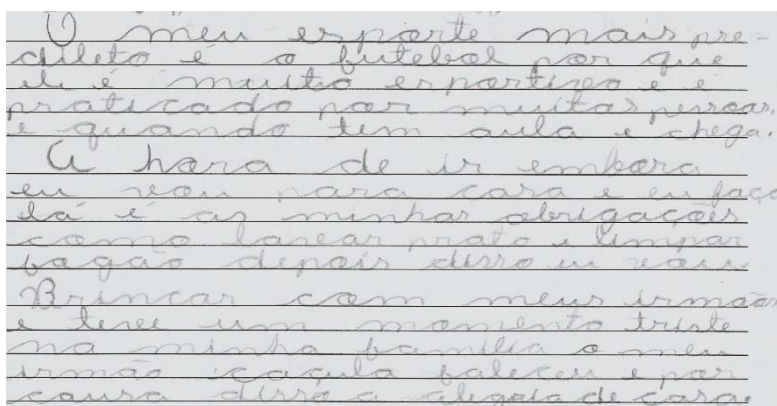 O meu esporte mais pre-
dileto é o futebol por que
ele é muitto esportivo e é
praticado por muitas pessoas,
e quando tem aula e chega.
A hora de ir embora
eu vou para casa e eu faço
lá é as minhas obrigações
como lavear prato e limpar
fogão depois disso eu vou.
Brincar com meus irmãos
e teve um momento triste
na minha família o meu
irmão caçula faleceu e por
causa disso a alegria de casa.